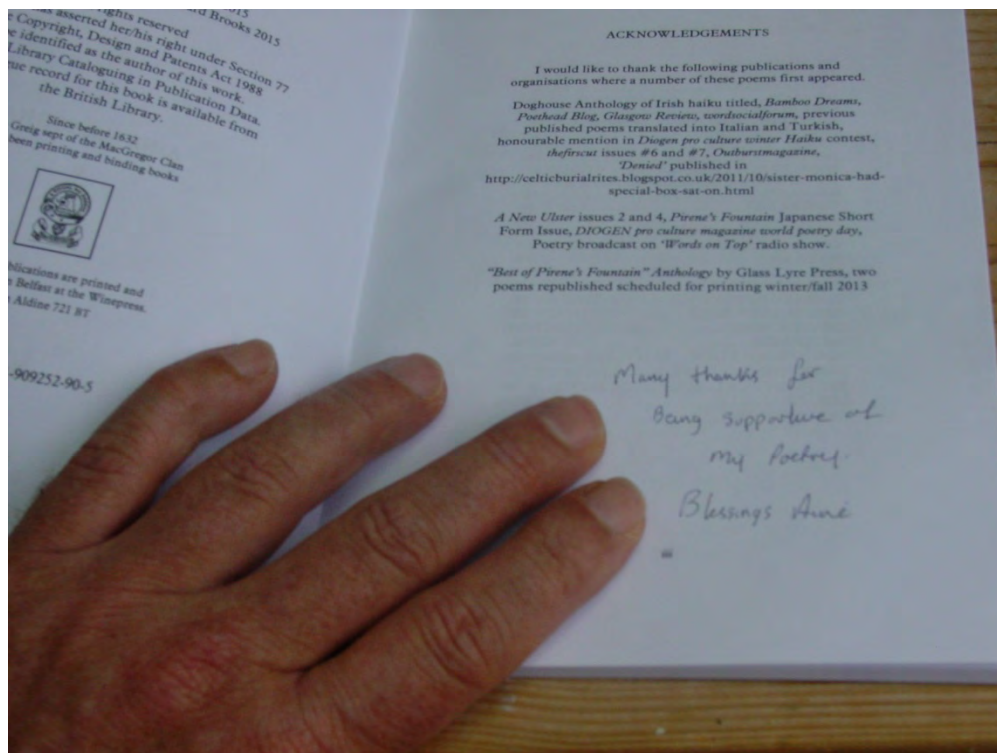 2015
rights reserved
Brooks 2015
has asserted her/his right under Section 77
Copyright, Design and Patents Act 1988
be identified as the author of this work.
Library Cataloguing in Publication Data.
record for this book is available from
the British Library.
Since before 1632
Greig sept of the MacGregor Clan
been printing and binding books
are printed and
Belfast at the Winepress.
Aldine 721 BT
-909252-90-5
ACKNOWLEDGEMENTS
I would like to thank the following publications and
organisations where a number of these poems first appeared.
Doghouse Anthology of Irish haiku titled, Bamboo Dreams,
Poethead Blog, Glasgow Review, wordsocialforum, previous
published poems translated into Italian and Turkish,
honourable mention in Diogen pro culture winter Haiku contest,
thefirscut issues #6 and #7, Outburstmagazine,
'Denied' published in
http://celticburialrites.blogspot.co.uk/2011/10/sister-monica-had-
special-box-sat-on.html
A New Ulster issues 2 and 4, Pirene's Fountain Japanese Short
Form Issue, DIOGEN pro culture magazine world poetry day,
Poetry broadcast on 'Words on Top' radio show.
"Best of Pirene's Fountain" Anthology by Glass Lyre Press, two
poems republished scheduled for printing winter/fall 2013
Many thanks for
Being supportive of
my Poetry.
Blessings
iii